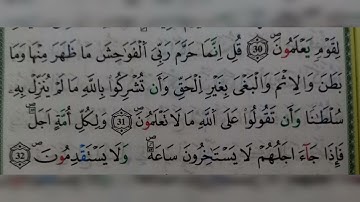 لِقَوْمٍ يَعْلَمُونَ ۝30 قُلْ اِنَّمَا حَرَّمَ رَبِّيَ الْفَوَاحِشَ مَا ظَهَرَ مِنْهَا وَمَا
بَطَنَ وَالْاِثْمَ وَالْبَغْيَ بِغَيْرِ الْحَقِّ وَاَنْ تُشْرِكُوا بِاللّٰهِ مَا لَمْ يُنَزِّلْ بِهٖ
سُلْطَانًا وَاَنْ تَقُولُوا عَلَى اللّٰهِ مَا لَا تَعْلَمُونَ ۝31 وَلِكُلِّ اُمَّةٍ اَجَلٌ
فَاِذَا جَٓاءَ اَجَلُهُمْ لَا يَسْتَاْخِرُونَ سَاعَةً وَلَا يَسْتَقْدِمُونَ ۝32